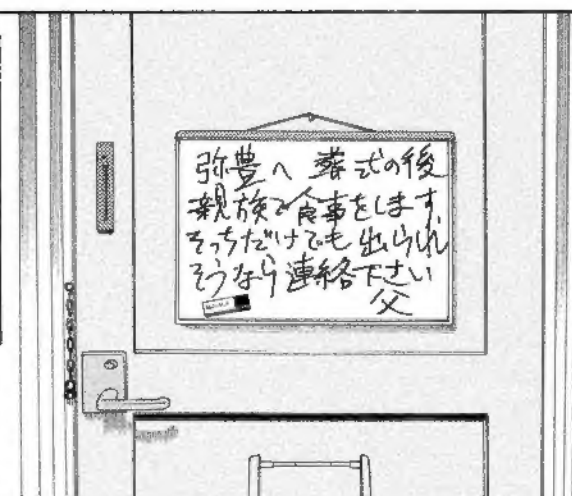 弥豊へ 葬式の後
親族で食事をします
そっちだけでも出られ
そうなら連絡下さい
父